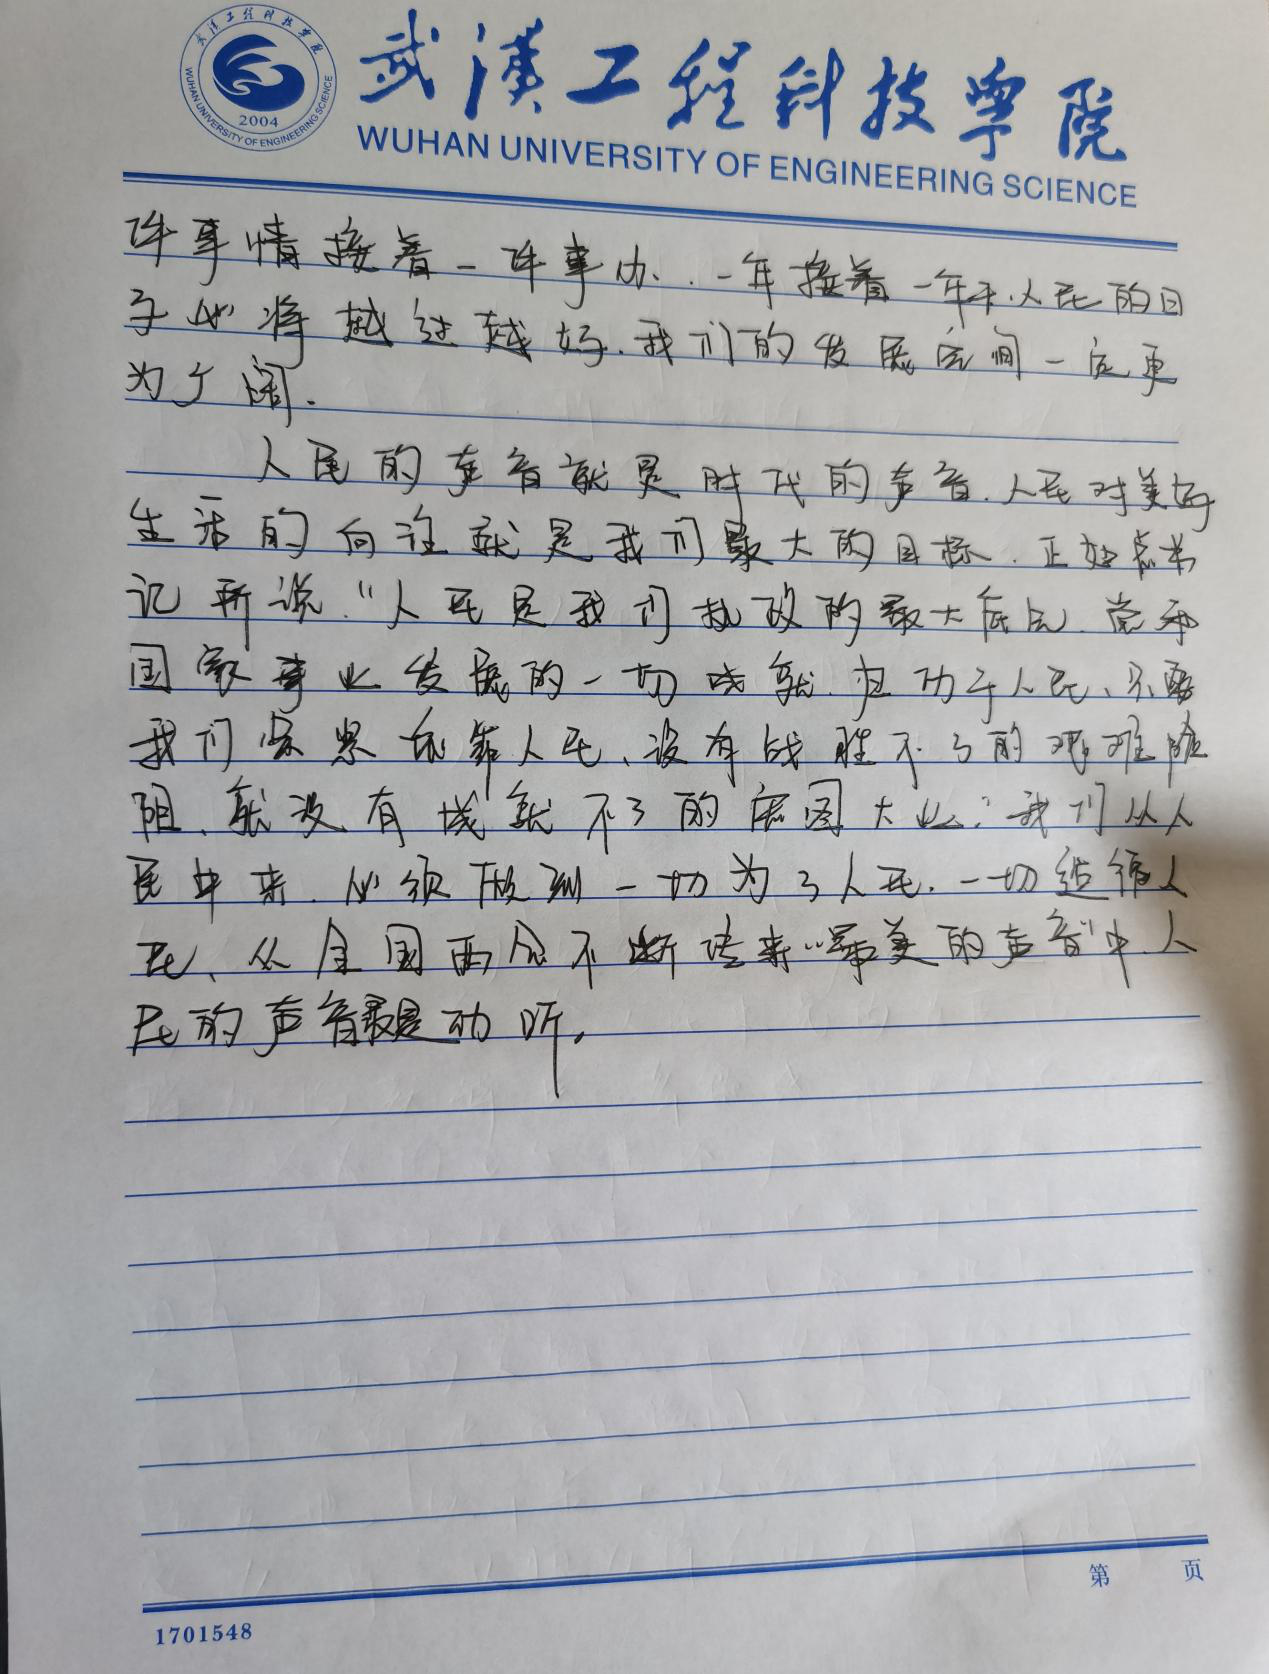 武汉工程科技学院
WUHAN UNIVERSITY OF ENGINEERING SCIENCE
2004
件事情接着一件事办,一年接着一年干,人民的日
子必将越过越好,我们的发展空间一定更
为广阔.
人民的声音就是时代的声音,人民对美好
生活的向往就是我们最大的目标.正如总书
记所说:"人民是我们执政的最大底气.党和
国家事业发展的一切成就,归功于人民、只要
我们紧紧依靠人民、没有战胜不了的艰难险
阻、就没有成就不了的宏图大业."我们从人
民中来,必须做到一切为了人民,一切造福人
民、从全国两会不断传来"最美的声音"中,人
民的声音最是动听。
第 页
1701548